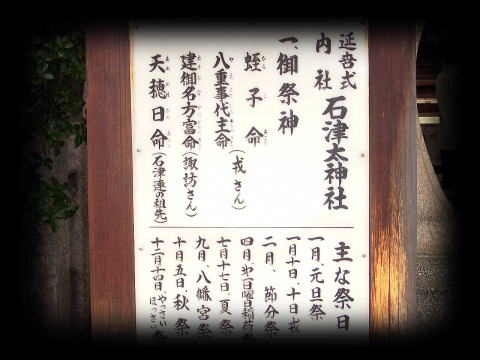 延喜式
内社
石津太神社
一、御祭神
蛭子命(戎さん)
八重事代主命
建御名方富命(諏訪さん)
天穂日命(石津連の祖先)
主な祭日
一月、元旦祭
一月十日、十日戎
二月、節分祭
四月、第二日曜日稲荷祭
七月十七日、夏祭
九月、八幡宮祭
十月五日、秋祭
十二月十四日、やっさいほっさい祭